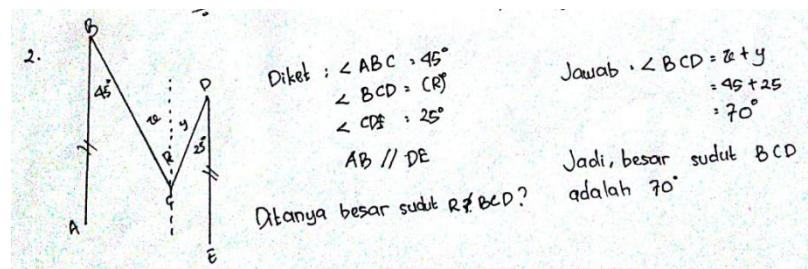 2.
B
45°
x
y
D
25°
R
C
A
E
Diket : ∠ ABC = 45°
∠ BCD = (R)°
∠ CDE : 25°
AB // DE
Ditanya besar sudut R BCD?
Jawab . ∠ BCD = x + y
= 45 + 25
= 70°
Jadi, besar sudut BCD
adalah 70°